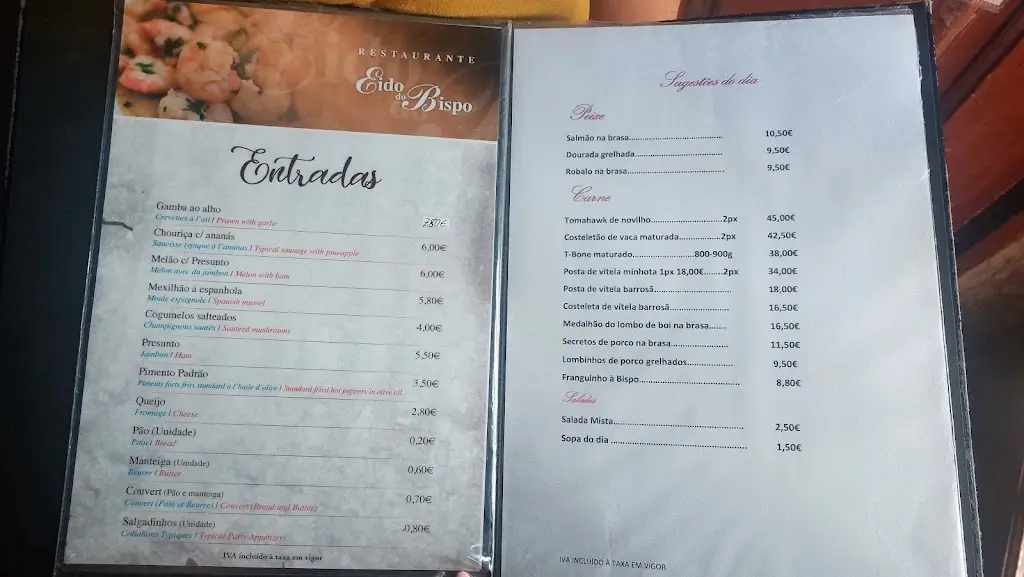 RESTAURANTE
Eido do Bispo
Entradas
Gamba ao alho
Crevettes à l'ail | Prawn with garlic 7,80€
Chouriça c/ ananás
Saucisse typique à l'ananas | Typical sausage with pineapple 6,00€
Melão c/ Presunto
Melon avec du jambon | Melon with ham 6,00€
Mexilhão à espanhola
Moule espagnole | Spanish mussel 5,80€
Cogumelos salteados
Champignons sautés | Sauteed mushrooms 4,00€
Presunto
Jambon | Ham 5,50€
Pimento Padrão
Piments forts frits standard à l'huile d'olive | Standard fried hot peppers in olive oil 3,50€
Queijo
Fromage | Cheese 2,80€
Pão (Unidade)
Pain | Bread 0,20€
Manteiga (Unidade)
Beurre | Butter 0,60€
Couvert (Pão e manteiga)
Couvert (Pain et Beurre) | Couvert (Bread and Butter) 0,70€
Salgadinhos (Unidade)
Collations Typiques | Typical Party Appetizers 0,80€
IVA incluido à taxa em vigor
Sugestões do dia
Peixe
Salmão na brasa 10,50€
Dourada grelhada 9,50€
Robalo na brasa 9,50€
Carne
Tomahawk de novilho 2px 45,00€
Costeletão de vaca maturada 2px 42,50€
T-Bone maturado 800-900g 38,00€
Posta de vitela minhota 1px 18,00€ 2px 34,00€
Posta de vitela barrosã 18,00€
Costeleta de vitela barrosã 16,50€
Medalhão do lombo de boi na brasa 16,50€
Secretos de porco na brasa 11,50€
Lombinhos de porco grelhados 9,50€
Franguinho à Bispo 8,80€
Saladas
Salada Mista 2,50€
Sopa do dia 1,50€
IVA INCLUIDO À TAXA EM VIGOR